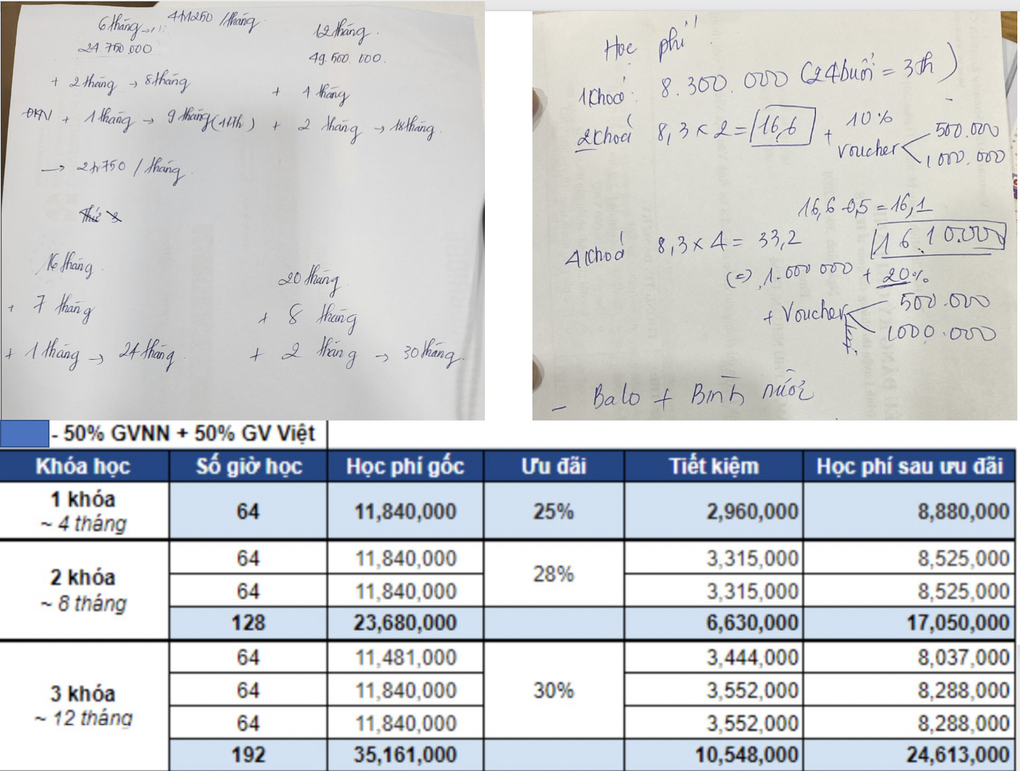 6 tháng 4tr1250 /tháng
24.750.000
+ 2 tháng → 8 tháng
+ 1 tháng → 9 tháng
→ 2tr750 / tháng
12 tháng.
49.500.000.
+ 4 tháng
+ 2 tháng → 18 tháng.
16 tháng
+ 7 tháng
+ 1 tháng → 24 tháng
20 tháng
+ 8 tháng
+ 2 tháng → 30 tháng.
Học phí
1 khoá: 8.300.000 (24 buổi = 3th)
2 khoá 8,3 x 2 = 16,6 + 10%
voucher 500.000
1,000.000
16,6 - 0,5 = 16,1
16.10.000
4 khoá 8,3 x 4 = 33,2
1.000.000 + 20%
+ Voucher 500.000
1000.000
- Balo + Bình nước
- 50% GVNN + 50% GV Việt
Khóa học Số giờ học Học phí gốc Ưu đãi Tiết kiệm Học phí sau ưu đãi
1 khóa
~ 4 tháng
64 11,840,000 25% 2,960,000 8,880,000
2 khóa
~ 8 tháng
64 11,840,000 3,315,000 8,525,000
28%
64 11,840,000 3,315,000 8,525,000
128 23,680,000 6,630,000 17,050,000
3 khóa
~ 12 tháng
64 11,481,000 3,444,000 8,037,000
64 11,840,000 30% 3,552,000 8,288,000
64 11,840,000 3,552,000 8,288,000
192 35,161,000 10,548,000 24,613,000